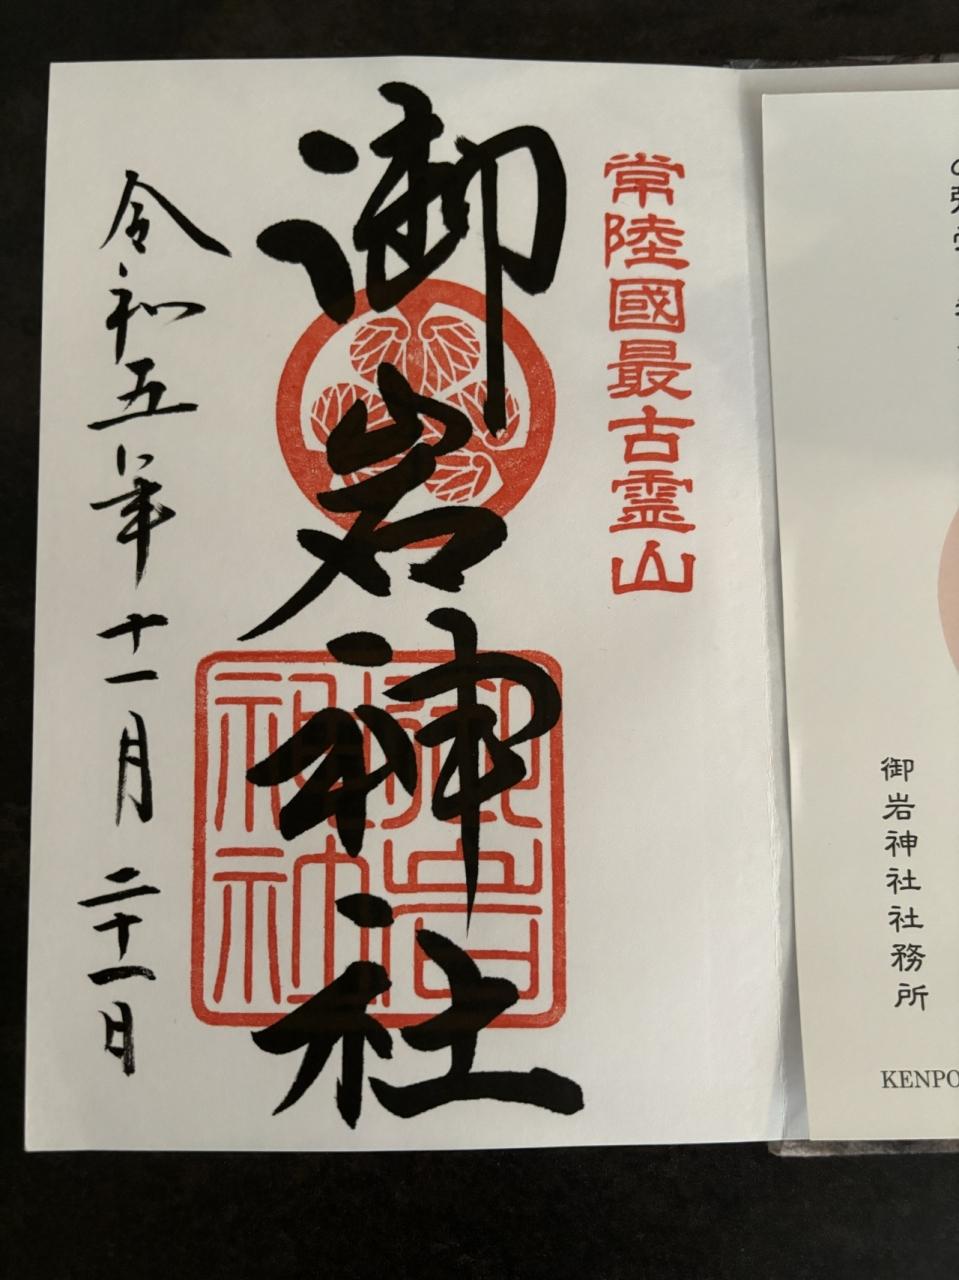 御岩神社社務所
KENPO
常陸國最古霊山
御岩神社
御岩神社
令和五年十一月二十一日